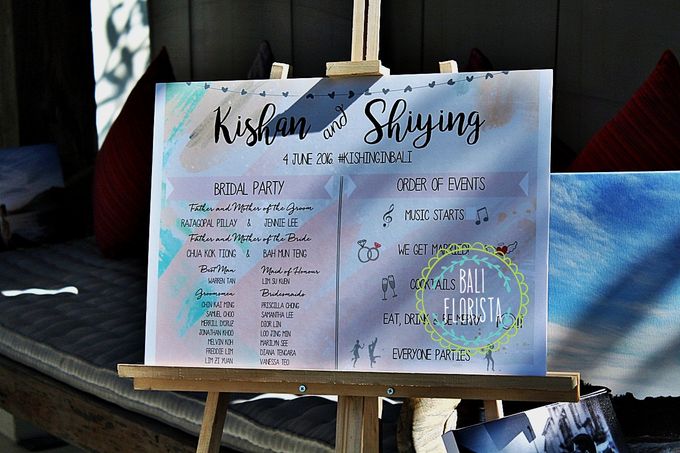 Kishan and Shiying
4 JUNE 2016 #KISHINGINBALI
BRIDAL PARTY
Father and Mother of the Groom
RAJAGOPAL PILLAY & JENNIE LEE
Father and Mother of the Bride
CHUA KOK TIONG & BAH MUN TENG
Best Man Maid of Honour
WARREN TAN LIM SU KUEN
Groomsmen Bridesmaids
CHIN KAI MING PRISCILLA CHONG
SAMUEL CHOO SAMANTHA LEE
MERRILL D'CRUZ DIOR LIN
JONATHAN KHOO LOO JING MIN
MELVIN KOH MARILYN SEE
FREDDIE LIM DIANA TENGARA
LIM ZI YUAN VANESSA TEO
ORDER OF EVENTS
MUSIC STARTS
WE GET MARRIED
COCKTAILS
EAT, DRINK & BE MERRY
EVERYONE PARTIES
BALI
FLORISTA